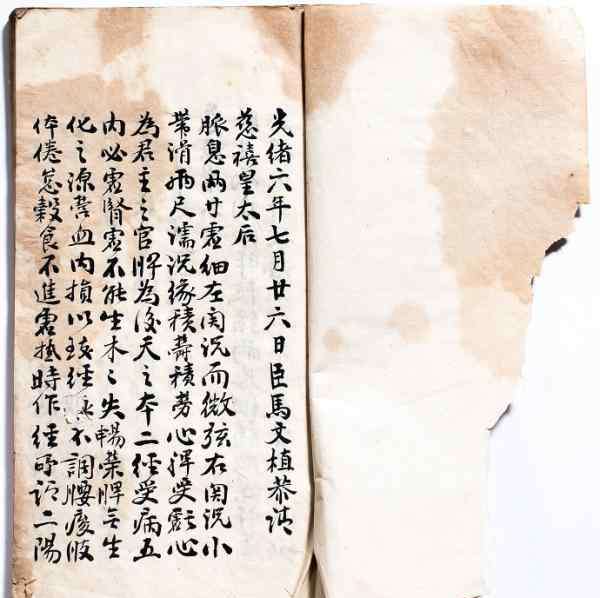 光緒六年七月廿六日臣馬文植恭請
慈禧皇太后
脈息兩寸虛細左関沉而微弦右関沉小
帶滑兩尺濡沉緣積鬱積勞心脾受虧心
為君主之官脾為後天之本二經受病五
內必虛腎虛不能生木〻失暢榮脾乏生
化之源營血內損以致經脉不調腰痠肢
体倦怠穀食不進寒熱時作經所謂二陽